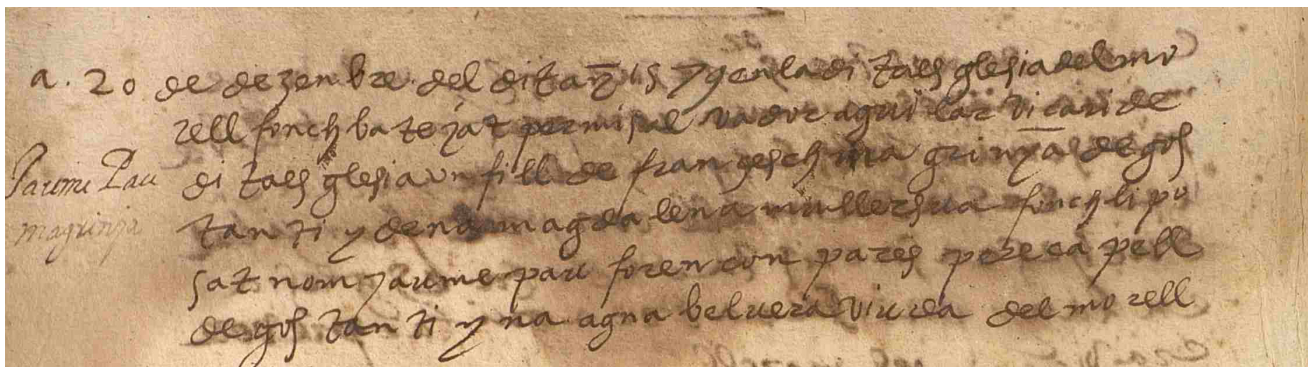 a. 20 de dezenbre del dit añ 15 y gen la dita esglesia del mo
rell fonch batejat per mi saluador aguilar vicari de
dita esglesia un fill de francesch magrinya de gos
Jaume Pau
magrinja
tanti y de na magdalena muller sua fonch li po
sat nom jaume pau foren conpares pere capell
de gostanti y na agna beluera viuda del morell